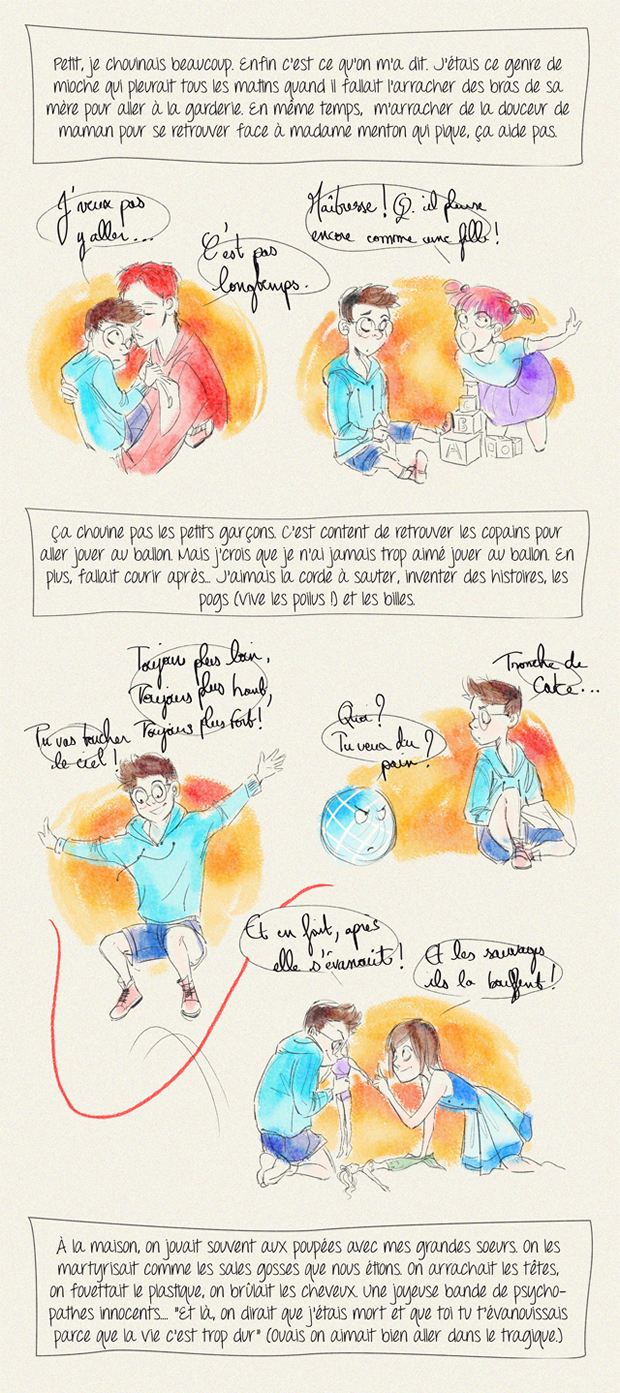 Petit, je chouinais beaucoup. Enfin c'est ce qu'on m'a dit. J'étais ce genre de
mioche qui pleurait tous les matins quand il fallait l'arracher des bras de sa
mère pour aller à la garderie. En même temps, m'arracher de la douceur de
maman pour se retrouver face à madame menton qui pique, ça aide pas.
J'veux pas
y aller...
C'est pas
longtemps.
Maîtresse! Q. il pleure
encore comme une fille!
C
B
A
O
Ça chouine pas les petits garçons. C'est content de retrouver les copains pour
aller jouer au ballon. Mais j'crois que je n'ai jamais trop aimé jouer au ballon. En
plus, fallait courir après... J'aimais la corde à sauter, inventer des histoires, les
pogs (vive les poilus !) et les billes.
Toujours plus loin,
Toujours plus haut,
Toujours plus fort!
Tu vas toucher
le ciel!
Quoi?
Tu veux du
pain?
Tronche de
cake...
Et en fait, après
elle s'évanouit!
Et les sauvages
ils la bouffent!
À la maison, on jouait souvent aux poupées avec mes grandes soeurs. On les
martyrisait comme les sales gosses que nous étions. On arrachait les têtes,
on fouettait le plastique, on brûlait les cheveux. Une joyeuse bande de psycho-
pathes innocents... "Et là, on dirait que j'étais mort et que toi tu t'évanouissais
parce que la vie c'est trop dur" (Ouais on aimait bien aller dans le tragique.)